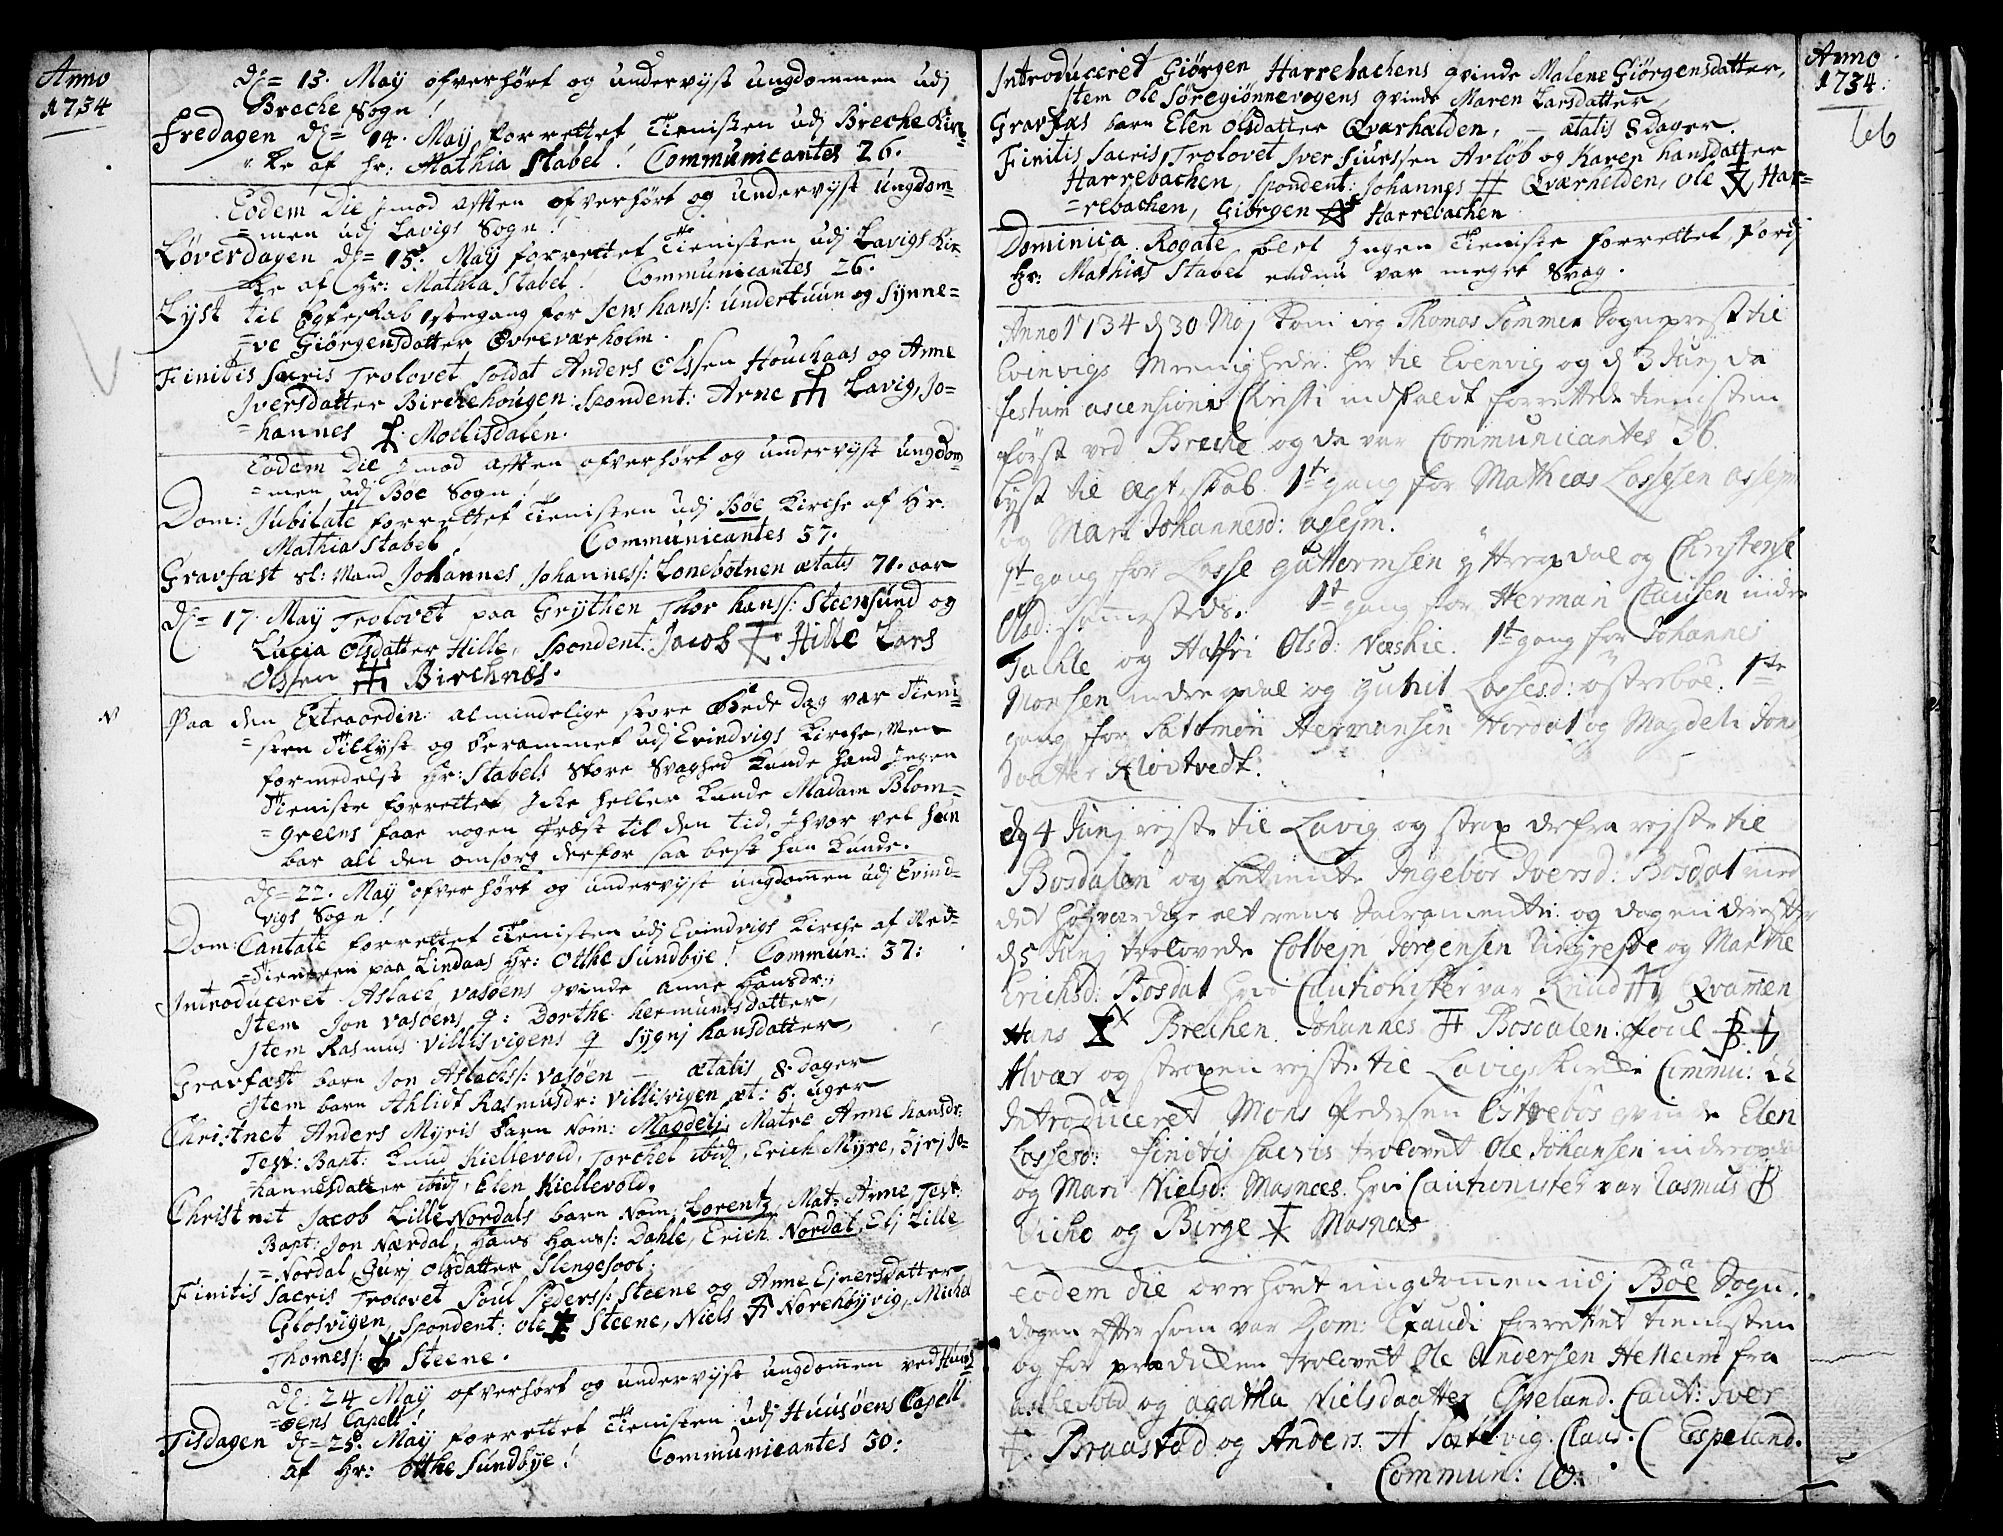 Anno
1734
dℓ= 13. Maÿ ofverhört og undervÿst ungdommen udj
Breche Sogn!
Fredagen dℓ= 14. Maÿ forrettet Tienisten udj Breche Kir=
"ke af hr: Mathia Stabel! Communicantes 26.
Eodem Die Jmod Aften ofverhört og undervÿst ungdom=
=men udj Lavigs Sogn!
Löverdagen dℓ= 15. Maÿ forrettet Tienisten udj Lavigs Kir=
ke af Hr: Mathia Stabel. Communicantes 26.
Lÿst til Egteskab 1stegang for Jens hans/: undertuun og Sÿnne=
=ve Giörgensdatter Övreværholm.
Finitis Sacris Trolovet Soldat Anders Olssen Houchaas og Anne
Jversdatter Birchehougen: Spondent: Arne Lavig, Jo=
=hannes Mollisdalen.
Eodem Die Jmod Aften ofverhört og undervÿst ungdom=
=men udj Böe Sogn!
Dom: Jubilate forrettet Tienisten udj Böe Kirche af Hr.
Mathia Stabel! Communicantes 57.
Gravfæst sl: Mand Johannes Johannes/: Lonebotnen ætatis 71. aar
dℓ= 17. Maÿ Trolovet paa Grÿthen Thor hans/: Steensund og
Lucia Olsdatter Hille, Spondent: Jacob Hille Lars
Olssen Birchnæs.
Paa den Extraordin: almindelige store Bede Dag var Tieni=
=sten Tillÿst og berammet udj Evindvigs Kirche, Men
formedelst Hr: Stabels store Svaghed kunde hand Jngen
Tieniste forrettet Jcke heller kunde Madam Blom=
=greens faae nogen Præst til den tid, Jhvor vel hun
bar all den omsorg derfor saa best hun kunde.
dℓ= 22. Maÿ ofverhört og undervÿst ungdommen udj Evind=
vigs Sogn!
Dom: Cantate forrettet Tienisten udj Evindvigs Kirche af Med=
=Tieneren paa Lindaas Hr: Otthe Sundbÿe! Commun: 37:
Introduceret Aslach Vasöens qvinde Anne hansdr:,
Jtem Jon Vasöens q: Dorthe hermundsdatter,
Jtem Rasmus Villisvigens q Sÿgnj hansdatter,
Gravfæst barn Jon Aslachs/: Vasöen — ætatis 8 dager
Jtem barn Ahlidt Rasmusdr: Villisvigen æt: 5. uger
Christnet Anders Mÿris barn Nom: Magdelj, Matre Anne hansdr:
Test: Bapt: Knud Kiellevold, Torchel ibid, Erich Mÿre, Sirj Jo=
=hannesdatter ibid, Elen Kiellevold.
Christnet Jacob Lille Nordals barn Nom: Lorentz, Mat: Anne Test:
Bapt: Jon Nærdal, Hans Hans/: Dahle, Erich Nordal, Elj Lille
=Nordal, Gurj Olsdatter Slengesool.
Finitis Sacris Trolovet Poul Peders/: Steene og Anne Ejnersdatter
Glosvigen, Spondent: Ole Steene, Niels Norehöÿvig, Michel
Thomes/: Steene.
dℓ: 24 Maÿ ofverhört og undervÿst ungdommen ved Huus=
=öens Capell!
Tisdagen dℓ= 25. Maÿ forrettet Tienisten udj Huusöens Capell
af Hr: Otthe Sundbÿe! Communicantes 50:
Anno
1734.
66
Introduceret Giörgen Harrebachens qvinde Malene Giörgensdatter,
Jtem Ole Söregiönnevogens qvinde Maren Larsdatter
Gravfæst barn Elen Olsdatter Qværhelden, — ætatis 8 dager.
Finitis Sacris, Trolovet Jver Siurssen Avlöb og Karen hansdatter
Harrebachen, Spondent: Johannes Qværhelden, Ole Har=
=rebachen, Giörgen Harrebachen
Dominica Rogate blel Jngen Tieniste forrettet, fordj
Hr: Mathias Stabel endnu var meget Svag.
Anno 1734 d 30 Maj kom jeg Thomas Sommer Sogneprest til
Evinvigs Menigheder her til Evenvig og d 3 Junj da
festum ascensionis Christi indfaldt forrettede tienisten
först ved Breche og da var Communicantes 36.
Lyst til ægteskab 1te gang for Mathias Lassesen
og Mari Johannesd:
1t gang for Lasse Guttormsen ÿttre opdal og Christense
Olsd: sammesteds. 1t gang for Herman Clausen indre
og Olsd: 1t gang for Johannes
Monsen indre opdal og Gunil Lassesd: österböe. 1te
gang for Salomon Hermansen Nordal og Magdeli Jons
daatter
dg 4 Junj rejste til Lavig og strax derfra rejste til
Bosdalen og betiente Ingebor Iversd: Bosdal med
det höjværdige alterens Sacramente og dagen derefter
d 5 Junj trolovede Colbejn Jörgensen og Marthe
Erichsd: Bosdal hvis Cautionister var Knud Qvammen
Hans Brechen Johannes Bosdalen: Poul
Alvær og straxen rejste til Lavigs Kirke Commu:
Introduceret Mons Pedersen Østrebös qvinde Elen
Lassesd: finitis sacris trolovet Ole Johansen indre opdal
og Mari Nielsd: Masnæs. hvis Cautionister var Rasmus
og Birge Masnæs
eodem die overhört ungdommen udj Böe Sogn.
dagen efter som var Dom: Exaudi forrettet tienisten
og for prædiken trolovet Ole Andersen Helleim fra
og agatha Nielsdaatter Espeland. Caut: Iver
Braastad og Anders Claus. Espeland.
Commun: